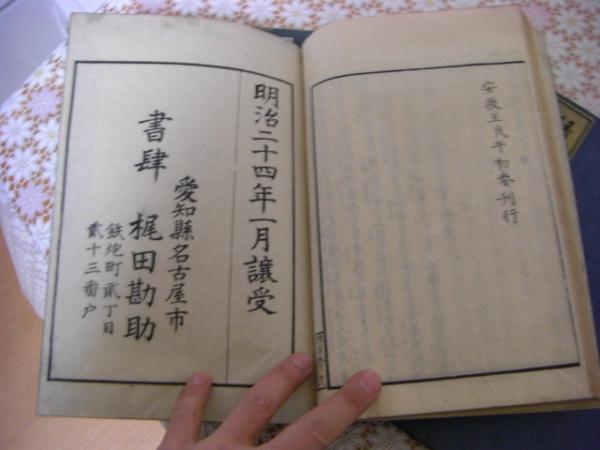 安政五戊午初春刊行
明治二十四年一月讓受
愛知縣名古屋市
鉄炮町貳丁目
貳十三番戸
書肆 梶田勘助